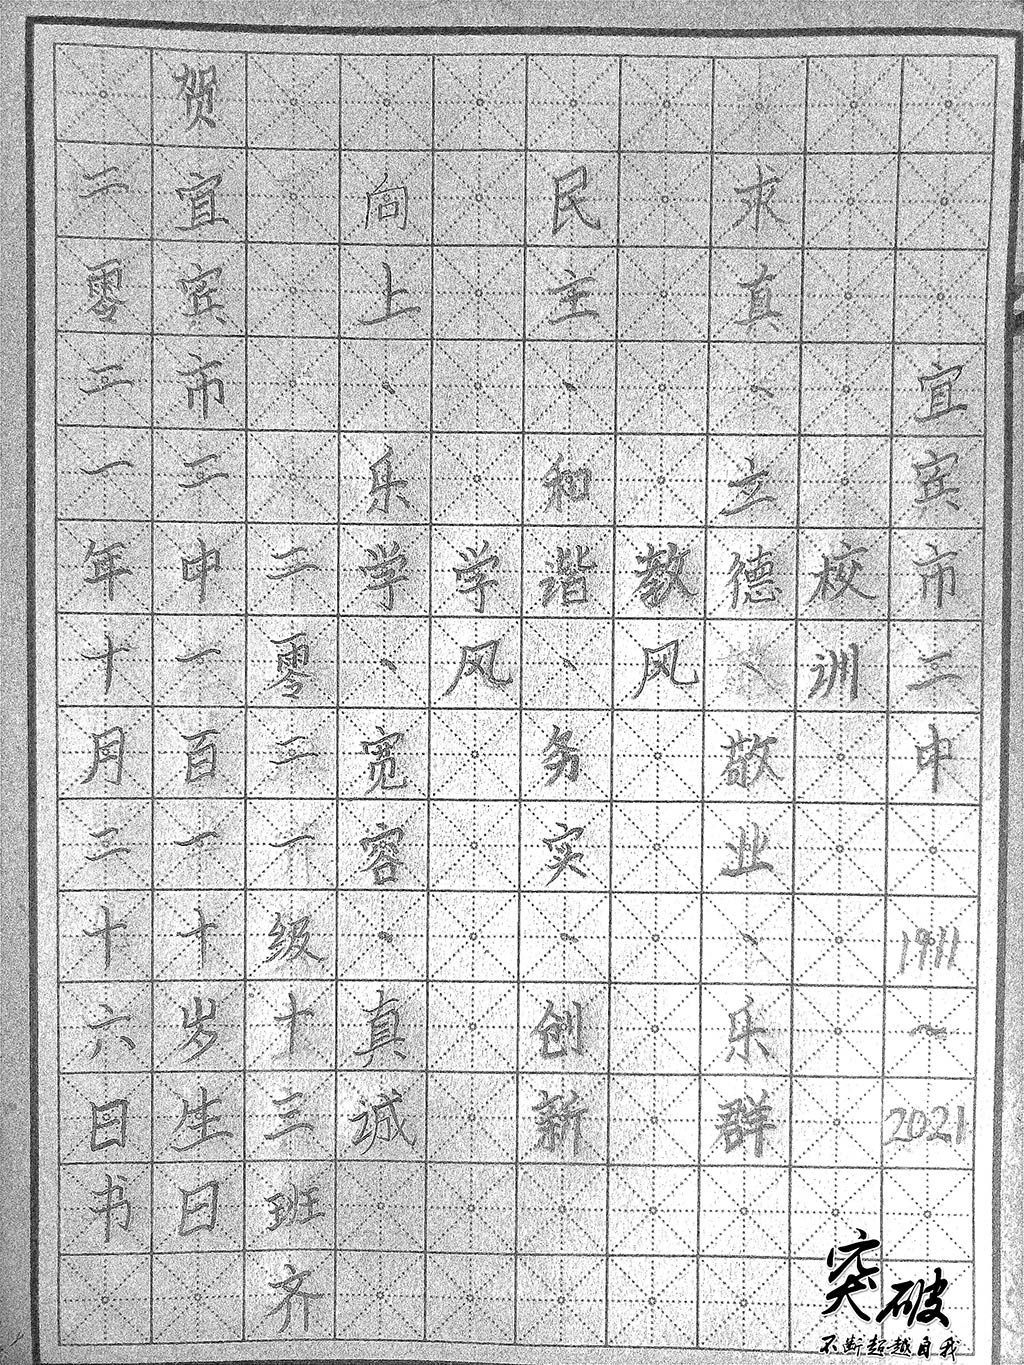 宜宾市二中 1911~2021
校训
求真、立德、敬业、乐群
教风
民主、和谐、务实、创新
学风
向上、乐学、宽容、真诚
二零二一级十三班齐
贺宜宾市二中一百一十岁生日
二零二一年十月二十六日书
突破
不断超越自我